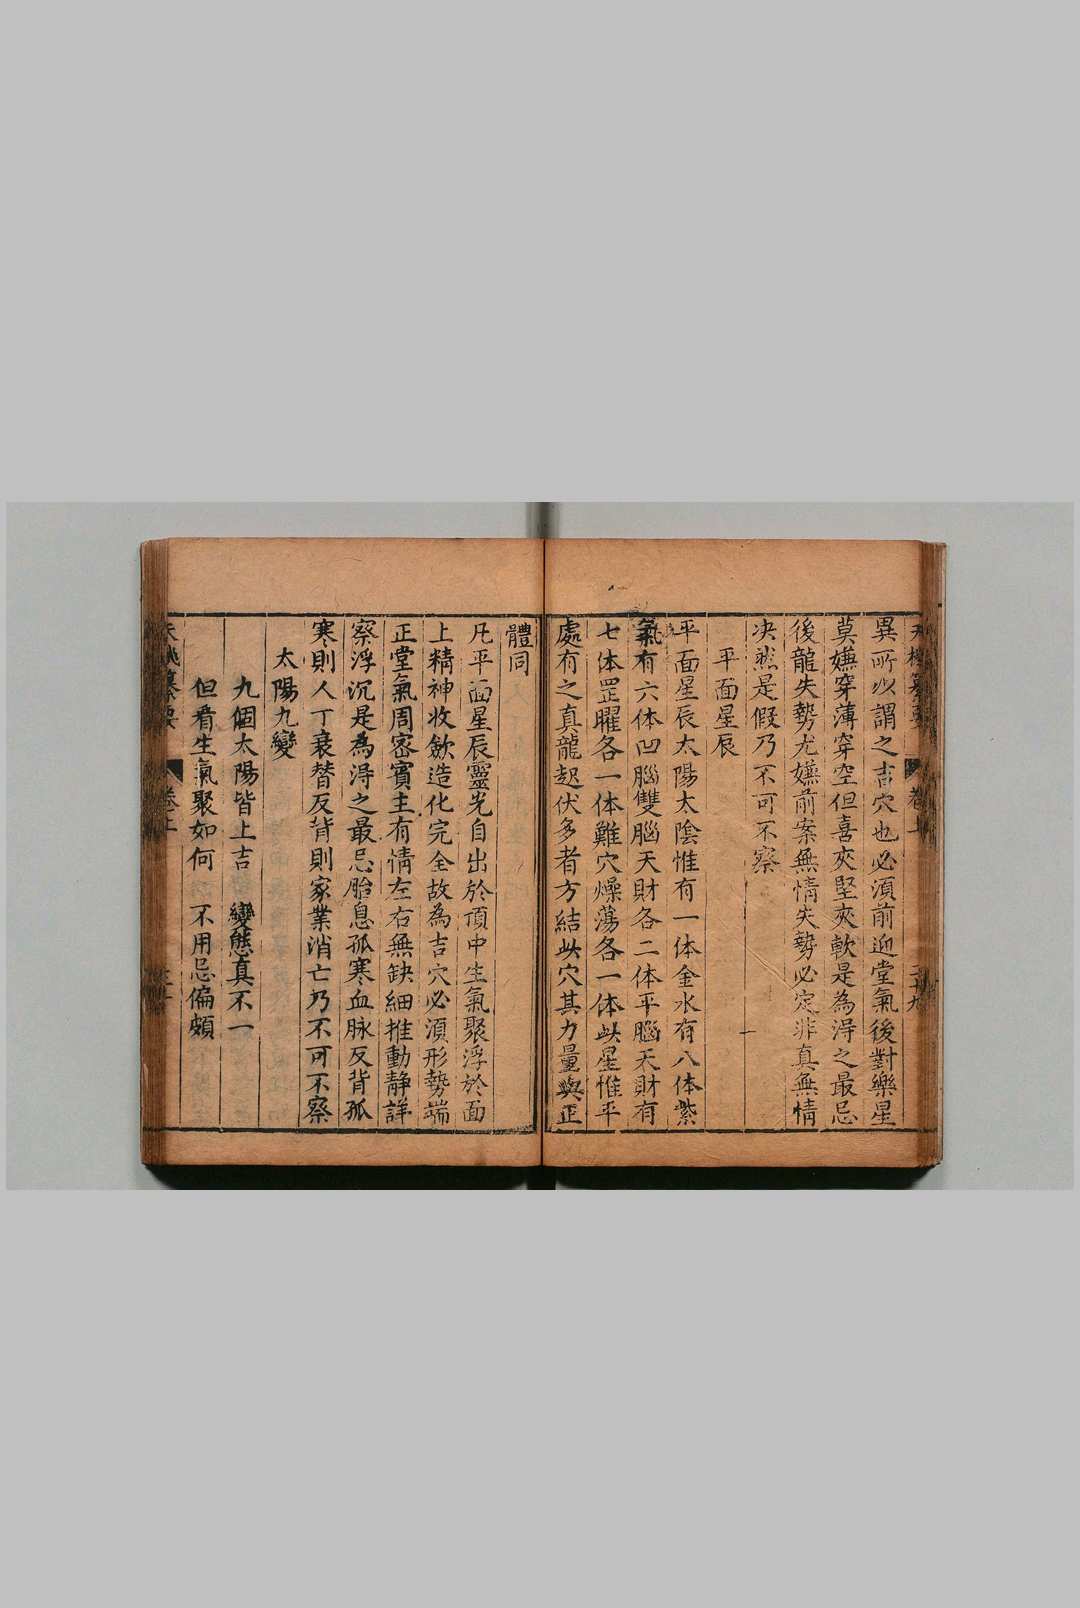 異所以謂之吉穴也必須前迎堂氣後對樂星
莫嫌穿薄穿空但喜夾堅夾軟是為淂之最忌
後龍失勢尤嫌前案無情失勢必定非真無情
决然是假乃不可不察
平面星辰
平面星辰太陽太陰惟有一体金水有八体紫
氣有六体凹腦雙腦天財各二体平腦天財有
七体罡曜各一体難穴燥蕩各一体此星惟平
處有之真龍起伏多者方結此穴其力量與正
體同
凡平面星辰靈光自出於頂中生氣聚浮於面
上精神收斂造化完全故為吉穴必須形勢端
正堂氣周密賓主有情左右無缺細推動靜詳
察浮沉是為淂之最忌胎息孤寒血脉反背孤
寒則人丁衰替反背則家業消亡乃不可不察
太陽九變
九個太陽皆上吉　變態真不一
但看生氣聚如何　不用忌偏頗
卷上